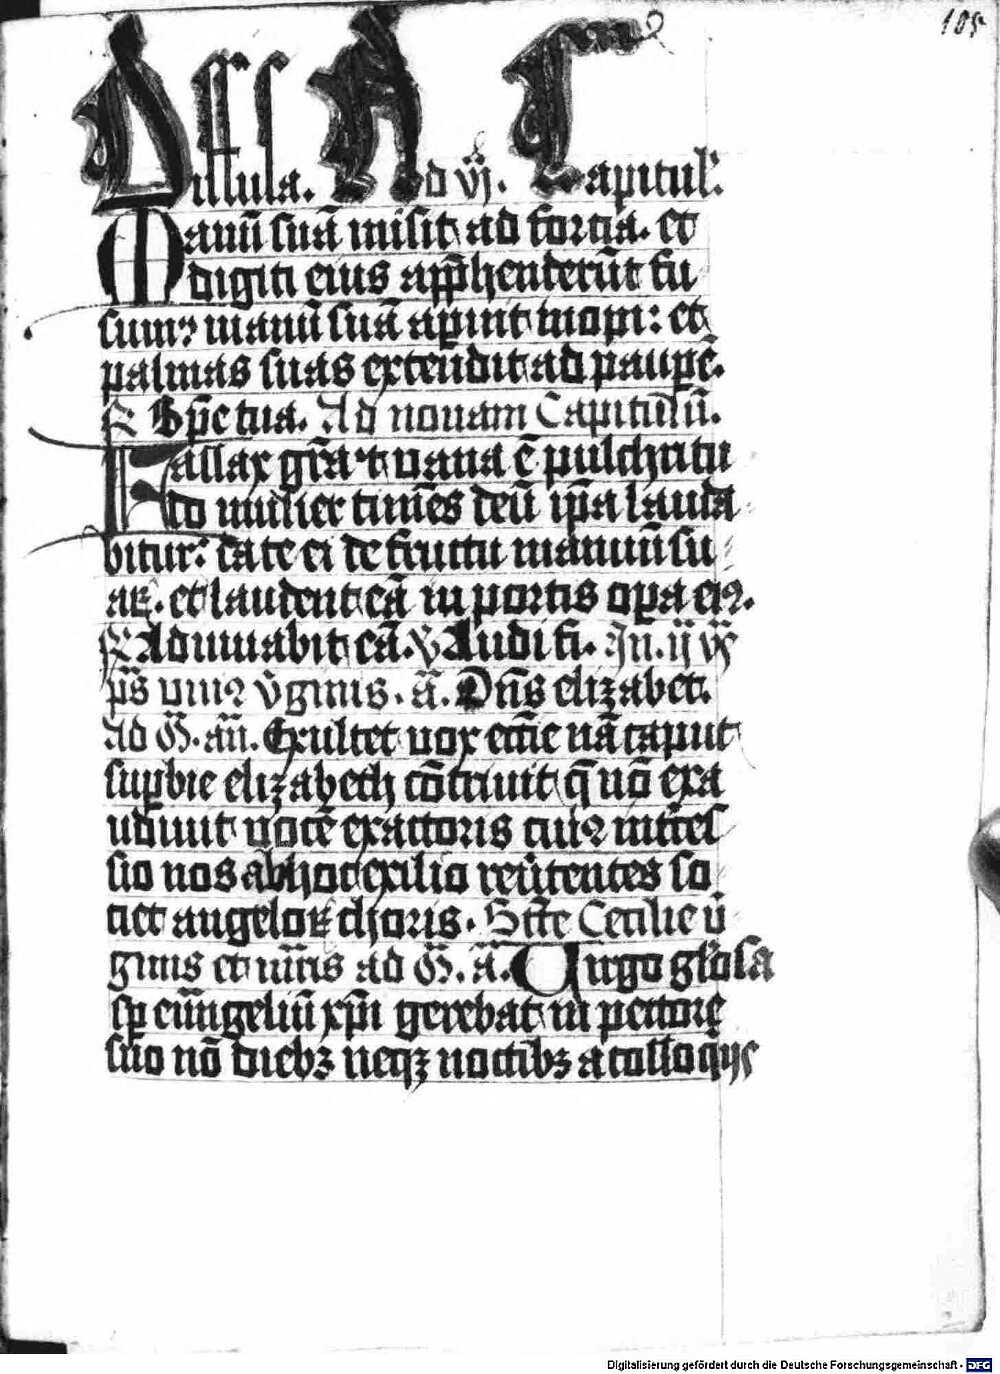 105
Diffusa. Ad vj. Capitul'.
Manū suā misit ad fortia. et
digiti eius app̄henderūt fu
sum: manū suā aperuit inopi: et
palmas suas extendit ad paupē.
℟ Sp̄e tua. Ad nonam Capitulū.
Fallax gr̄a et vana ē pulchritu
do mulier timēs deū ip̄a lauda
bitur: date ei de fructu manuū su
aꝝ. et laudent eā in portis oꝑa eiꝰ.
℟ Adiuuabit eā. ℣ Audi fi. In. ij vꝭ
p̄s vniꝰ v̄ginis. ā. Dn̄s elizabet.
Ad M̄. an̄. Exultet vox eccīe nā caput
suꝑbie elizabeth cōtriuit q̄ nō exa
udiuit vocē exactoris cuiꝰ int̄ces
sio nos ab hoc exilio reūtentes so
ciet angeloꝝ choris. Sc̄te Cecilie v̄
ginis et mr̄is ad M̄. ā. Uirgo gl̄osa
sp̄ eūngeliū xp̄i gerebat in pectore
suo nō diebꝫ neqꝫ noctibꝫ a colloquijs
Digitalisierung gefördert durch die Deutsche Forschungsgemeinschaft - DFG